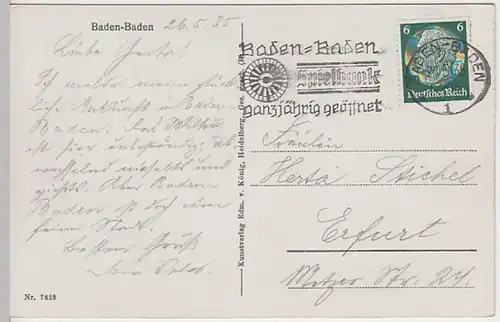 Baden-Baden 26.5.35
Liebe Herta!
Ich melde meine glück-
liche Ankunft in Baden-
Baden. Das Wetter
ist hier unbeständig, ab-
wechselnd
Aber Baden-
Baden ist doch eine
feine Stadt.
Besten Gruß
Dein
Nr. 7628
Kunstverlag Edm. v. König, Heidelberg. Ges. gesch.
Baden=Baden
Spielbank
ganzjährig geöffnet
BADEN-BADEN
1
6 6
Deutsches Reich
Fräulein
Herta Stichel
Erfurt
Metzer Str. 24.